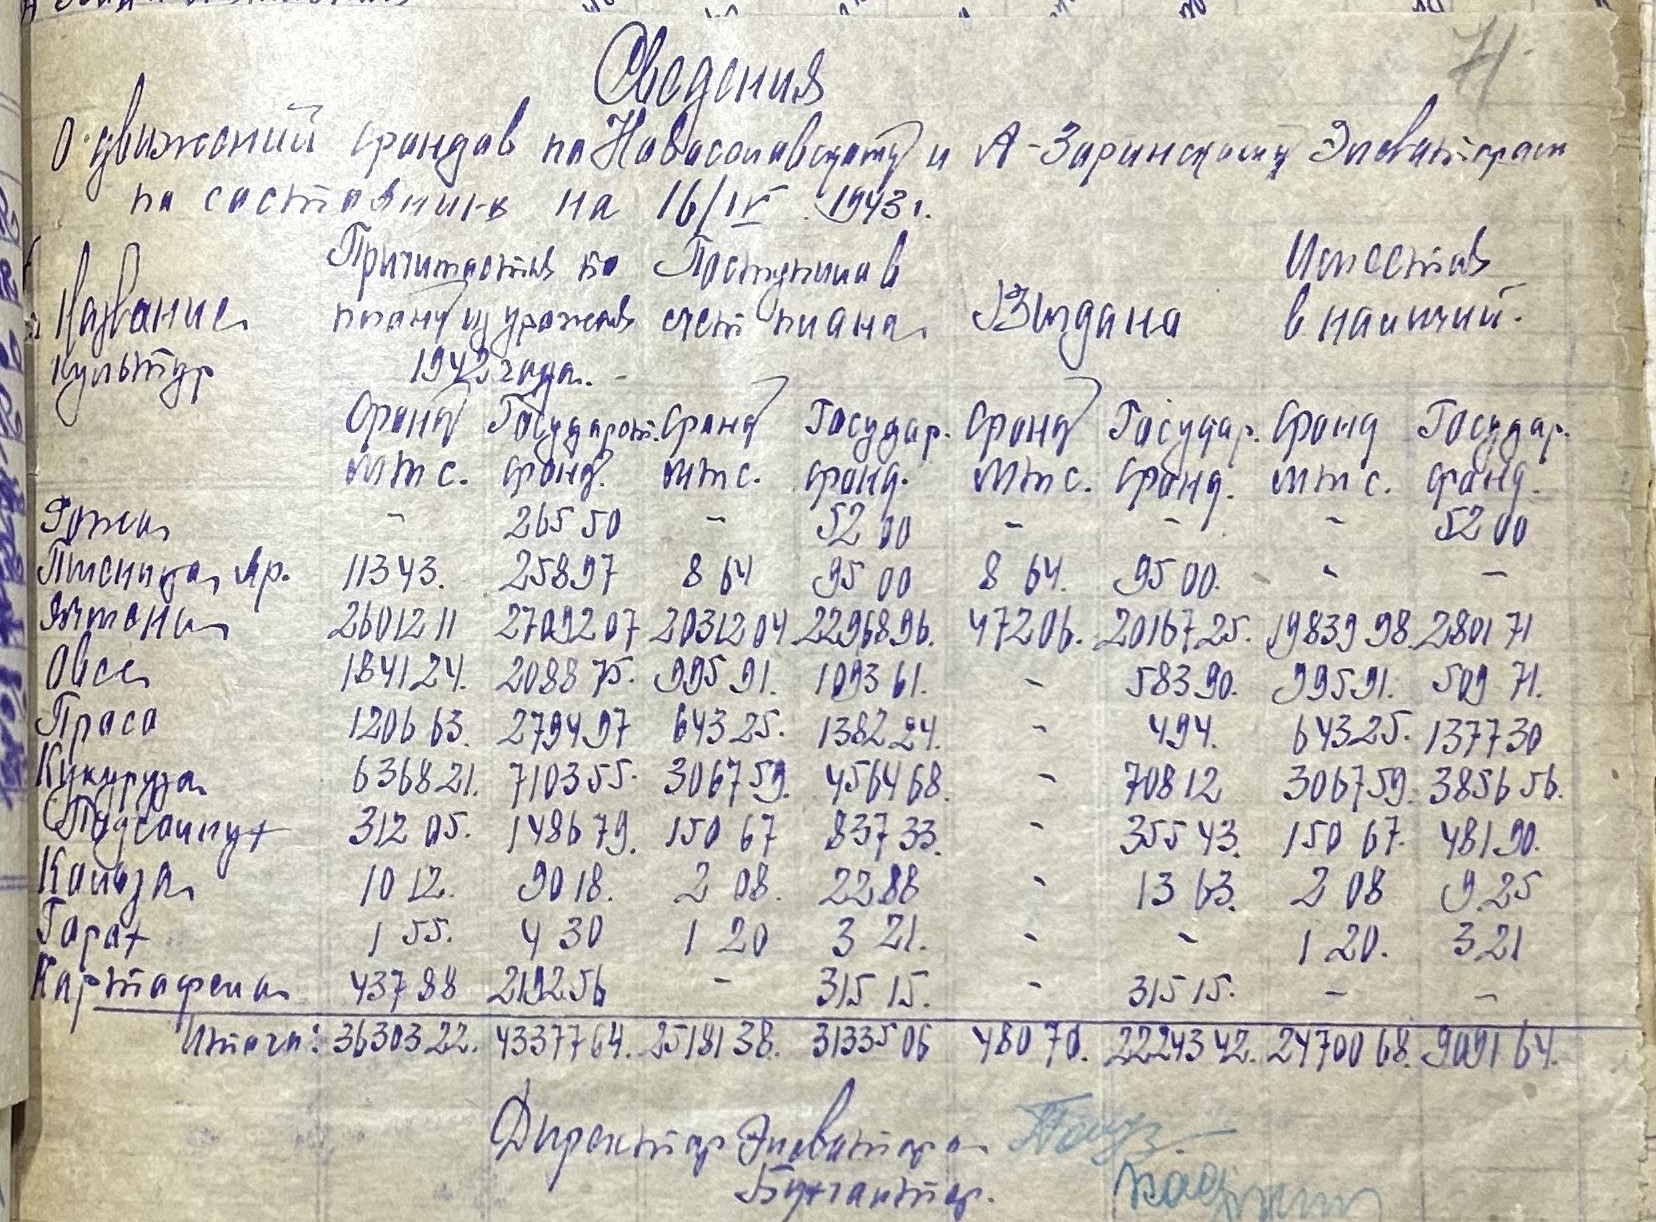 71
Сведения
О движений фондав по Новосолавскому и А-Заринскому Элеваторам
по састаянию на 16/IV 1943 г.
Название культур
Причитается по плану из урожая 1942 года.
Поступила в счет плана
Выдана
Имеется в наличий.
Фонд мтс. Государст. фонд. Фонд мтс. Государ. фонд. Фонд мтс. Государ. фонд. Фонд мтс. Государ. фонд.
Рожь - 265 50 - 52 00 - - - 52 00
Пшеница Яр. 113 43. 258 97 8 64 95 00 8 64. 95 00. - -
Ячмень 26012 11 27092 07 20312 04 22968 96. 472 06. 20167 25. 19839 98. 2801 71
Овес 1841 24. 2088 75. 995 91. 1093 61. - 583 90. 995 91. 509 71.
Праса 1206 63. 2794 97 643 25. 1382 24. - 4 94. 643 25. 1377 30
Кукуруза 6368 21. 7103 55. 3067 59. 4564 68. - 708 12 3067 59. 3856 56.
Подсолнух 312 05. 1486 79. 150 67 837 33. - 355 43. 150 67. 481 90.
Кольза 10 12. 90 18. 2 08. 22 88 - 13 63. 2 08 9.25
Горох 1 55. 4 30 1 20 3 21. - - 1 20. 3 21
Картофель 437 88 2192 56 - 315 15. - 315 15. - -
Итого: 36303 22. 43377 64. 25181 38. 31335 06 480 70. 22243 42. 24700 68. 9091 64.
Директор Элеватора
Бухгалтер.